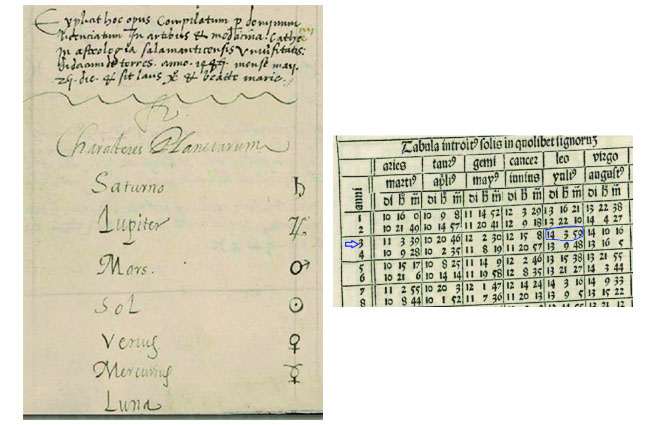 Explicit hoc opus Compilatum p dominum
licenciatum In artibus & medicina. Cathe
In astrologia salamanticensis Vniversitatis
didacum de torres. anno .1487. mense maij
25. die. & sit laus & beatte marie.
Charatteres Planetarum
Saturno ♄
Iupiter ♃
Mars. ♂
Sol ☉
Venus ♀
Mercurius ☿
Luna
Tabula introitꝰ solis in quolibet signoruȝ
aries taurꝰ gemi cancer leo virgo
martiꝰ ap̃lꝰ mayꝰ iunius yuliꝰ augustꝰ
anni di h m̃ di h m̃ di h m̃ di h m̃ di h m̃ di h m̃
1 10 16 0 10 9 8 11 14 52 12 3 29 13 16 21 13 22 38
2 10 21 49 10 14 57 11 20 41 12 9 18 13 22 10 14 4 27
3 11 3 39 10 20 46 12 2 30 12 15 8 14 3 59 14 10 16
4 10 9 28 10 2 35 11 8 19 11 20 57 13 9 48 13 16 5
5 10 15 17 10 8 25 11 14 9 12 2 46 13 15 38 13 21 55
6 10 21 6 10 14 14 11 19 58 12 8 35 13 21 27 14 3 44
7 11 2 55 10 20 3 12 1 47 12 14 24 14 3 16 14 9 33
8 10 8 44 10 1 52 11 7 36 11 20 13 13 9 5 13 15 22